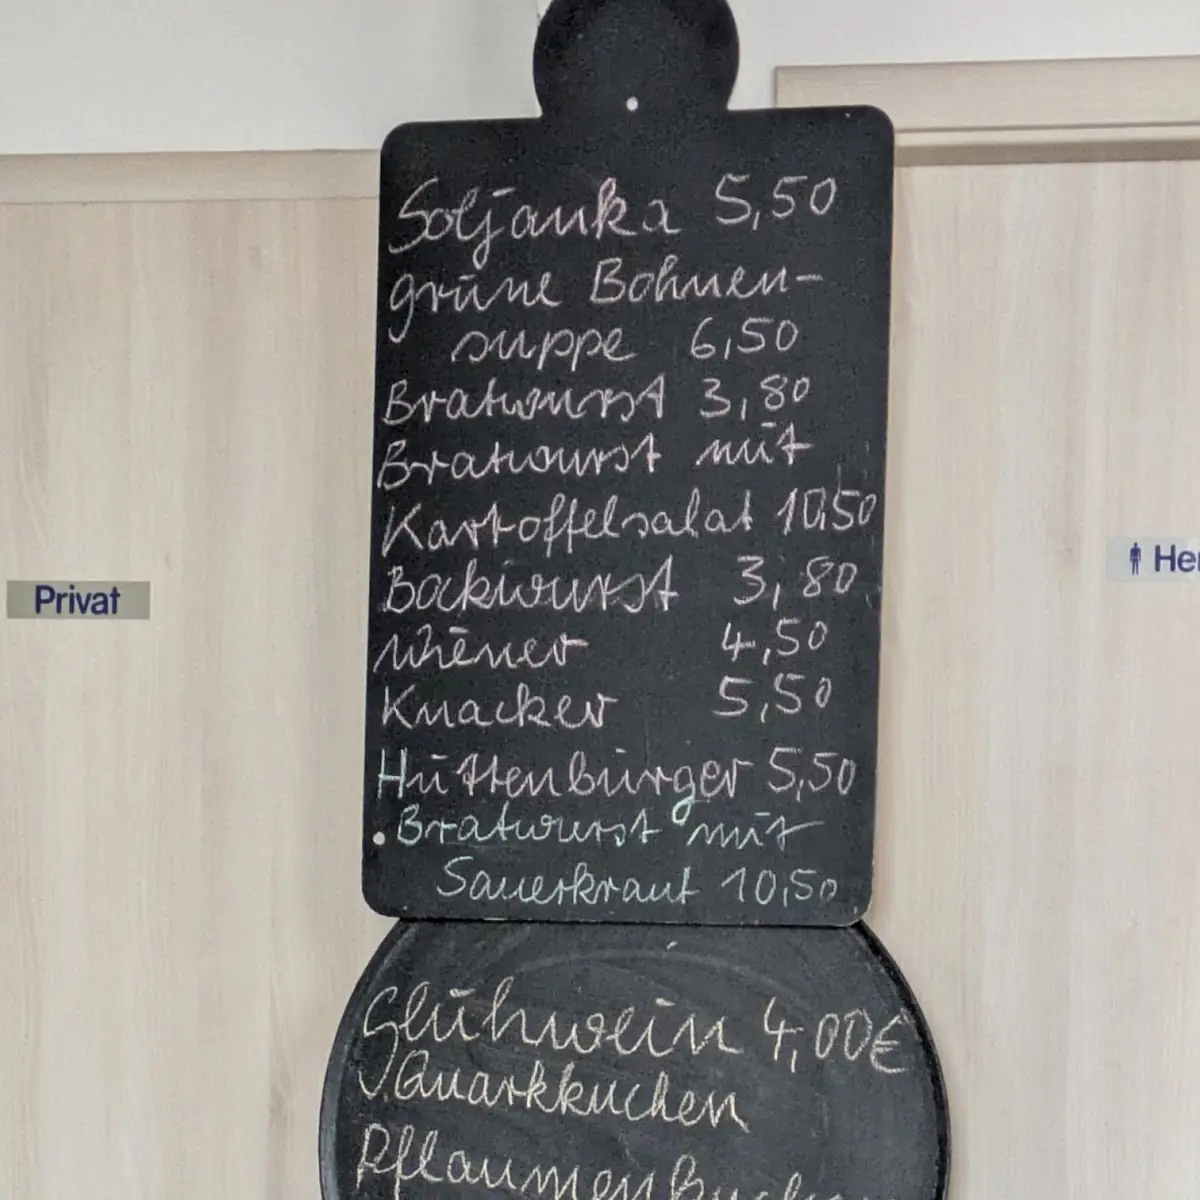 Soljanka 5,50
grüne Bohnen-
suppe 6,50
Bratwurst 3,80
Bratwurst mit
Kartoffelsalat 10,50
Bockwurst 3,80
Wiener 4,50
Knacker 5,50
Hüttenburger 5,50
Bratwurst mit
Sauerkraut 10,50
Glühwein 4,00€
Quarkkuchen
Privat